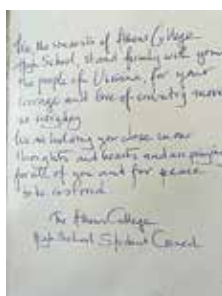 We the students of Athens College
High School, stand firmly with you
the people of Ukraine, for your
courage and love of country move
us everyday
We are holding you close in our
thoughts and hearts and are praying
for all of you and for peace
to be restored.
The Athens College
High School Student Council